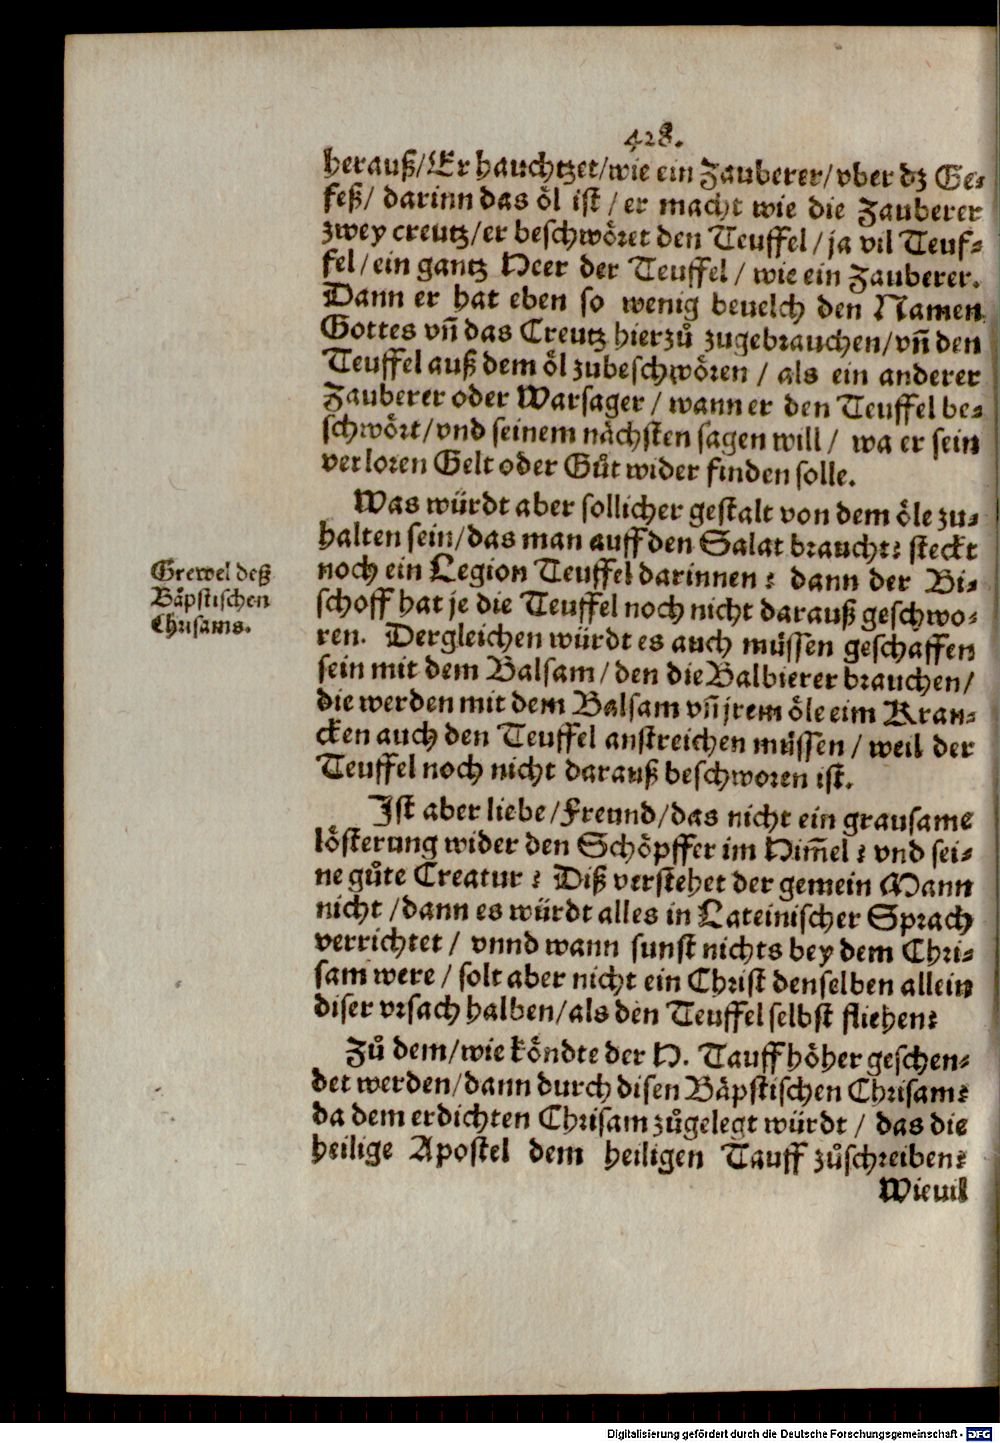 428.
herauß/Er hauchtzet/wie ein Zauberer/vber dz Ge-
feß/ darinn das öl ist/er macht wie die Zauberer
zwey creutz/er beschwöret den Teuffel/ja vil Teuf-
fel/ein gantz Heer der Teuffel/ wie ein Zauberer.
Dann er hat eben so wenig beuelch den Namen
Gottes vñ das Creutz hierzů zugebrauchen/vñ den
Teuffel auß dem öl zubeschwören / als ein anderer
Zauberer oder Warsager / wann er den Teuffel be-
schwört/vnd seinem nächsten sagen will/ wa er sein
verloren Gelt oder Gůt wider finden solle.
Was würdt aber sollicher gestalt von dem öle zu-
halten sein/das man auff den Salat braucht? steckt
noch ein Legion Teuffel darinnen? dann der Bi-
schoff hat je die Teuffel noch nicht darauß geschwo-
ren. Dergleichen würdt es auch müssen geschaffen
sein mit dem Balsam/den die Balbierer brauchen/
die werden mit dem Balsam vñ jrem öle eim Kran-
cken auch den Teuffel anstreichen müssen/ weil der
Teuffel noch nicht darauß beschworen ist.
Grewel deß
Bäpstischen
Chrisams.
Ist aber liebe/Freund/das nicht ein grausame
lösterung wider den Schöpffer im Him̃el? vnd sei-
ne gůte Creatur? Diß verstehet der gemein Mann
nicht /dann es würdt alles in Lateinischer Sprach
verrichtet/ vnnd wann sunst nichts bey dem Chri-
sam were/ solt aber nicht ein Christ denselben allein
diser vrsach halben/als den Teuffel selbst fliehen?
Zů dem/wie köndte der H. Tauff höher geschen-
det werden/dann durch disen Bäpstischen Chrisam?
da dem erdichten Chrisam zůgelegt würdt/ das die
heilige Apostel dem heiligen Tauff zůschreiben?
Wieuil
Digitalisierung gefördert durch die Deutsche Forschungsgemeinschaft - DFG